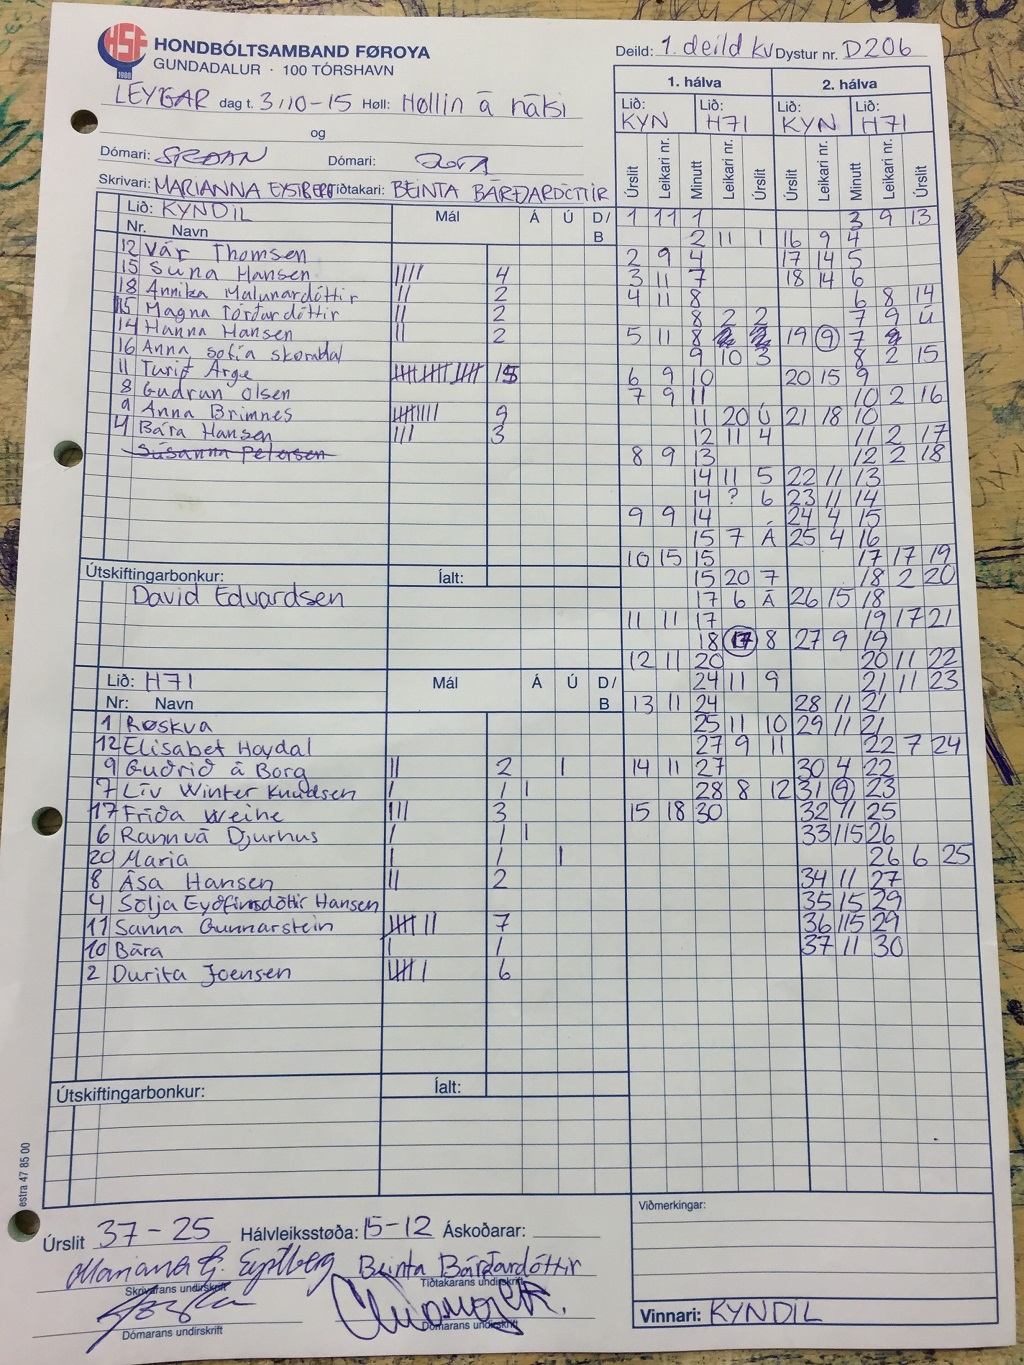 HSF
1980
HONDBÓLTSAMBAND FØROYA
GUNDADALUR · 100 TÓRSHAVN
Deild: 1. deild kv Dystur nr. D206
LEYGAR dag t. 3/10-15 Høll: Høllin á nálsi
og
Dómari: Dómari:
Skrivari: MARIANNA EYSTBERG Tíðtakari: BEINTA BÁRÐARDÓTTIR
1. hálva 2. hálva
Lið: KYN Lið: H71 Lið: KYN Lið: H71
Úrslit Leikari nr. Minutt Leikari nr. Úrslit Úrslit Leikari nr. Minutt Leikari nr. Úrslit
Lið: KYNDIL Mál Á Ú D/B
Nr. Navn
12 Vár Thomsen
15 Suna Hansen //// 4
18 Annika Malunardóttir // 2
15 Magna Tórðardóttir // 2
14 Hanna Hansen // 2
16 Anna sofía
11 Turið Arge 15
8 Guðrun Olsen
9 Anna Brimnes 9
4 Bára Hansen /// 3
Súsanna Petersen
Útskiftingarbonkur: Íalt:
David Edvardsen
Lið: H71 Mál Á Ú D/B
Nr: Navn
1 Røskva
12 Elisabet Hoydal
9 Guðrið á Borg // 2 1
7 Lív Winter Knudsen / 1 1
17 Fríða Weihe /// 3
6 Rannvá Djurhus / 1 1
20 Maria / 1 1
8 Ása Hansen // 2
4 Sólja Eyðfinsdóttir Hansen
11 Sanna Gunnarstein 7
10 Bára / 1
2 Durita Joensen 6
Útskiftingarbonkur: Íalt:
1 11 1 3 9 13
2 11 1 16 9 4
2 9 4 17 14 5
3 11 7 18 14 6
4 11 8 6 8 14
8 2 2 7 9 Ú
5 11 8 19 9 7
9 10 3 8 2 15
6 9 10 20 15 9
7 9 11 10 2 16
11 20 Ú 21 18 10
12 11 4 11 2 17
8 9 13 12 2 18
14 11 5 22 11 13
14 ? 6 23 11 14
9 9 14 24 4 15
15 7 Á 25 4 16
10 15 15 17 17 19
15 20 7 18 2 20
17 6 Á 26 15 18
11 11 17 19 17 21
18 17 8 27 9 19
12 11 20 20 11 22
24 11 9 21 11 23
13 11 24 28 11 21
25 11 10 29 11 21
27 9 11 22 7 24
14 11 27 30 4 22
28 8 12 31 9 23
15 18 30 32 11 25
33 15 26
26 6 25
34 11 27
35 15 29
36 15 29
37 11 30
estra 47 85 00
Viðmerkingar:
Úrslit 37-25 Hálvleiksstøða: 15-12 Áskoðarar:
Mariana E. Eystberg Beinta Bárðardóttir
Skrivarans undirskrift Tíðtakarans undirskrift
Dómarans undirskrift Dómarans undirskrift
Vinnari: KYNDIL